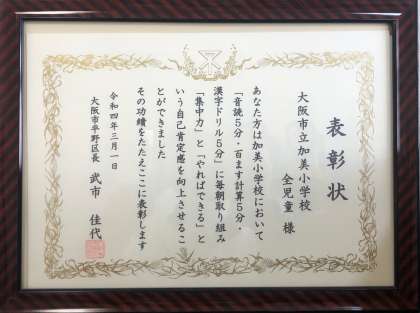 表彰状
大阪市立加美小学校
全児童 様
あなた方は加美小学校において
「音読5分・百ます計算5分・
漢字ドリル5分」に毎朝取り組み
「集中力」と「やればできる」と
いう自己肯定感を向上させるこ
とができました
その功績をたたえここに表彰します
令和四年三月一日
大阪市平野区長 武市 佳代